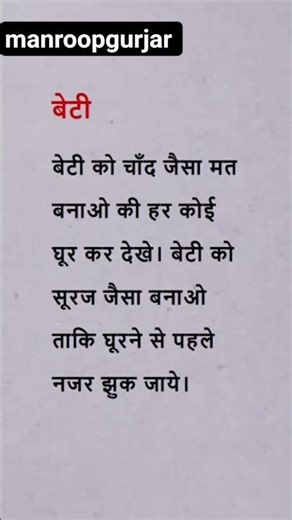 manroopgurjar
बेटी
बेटी को चाँद जैसा मत
बनाओ की हर कोई
घूर कर देखे। बेटी को
सूरज जैसा बनाओ
ताकि घूरने से पहले
नजर झुक जाये।